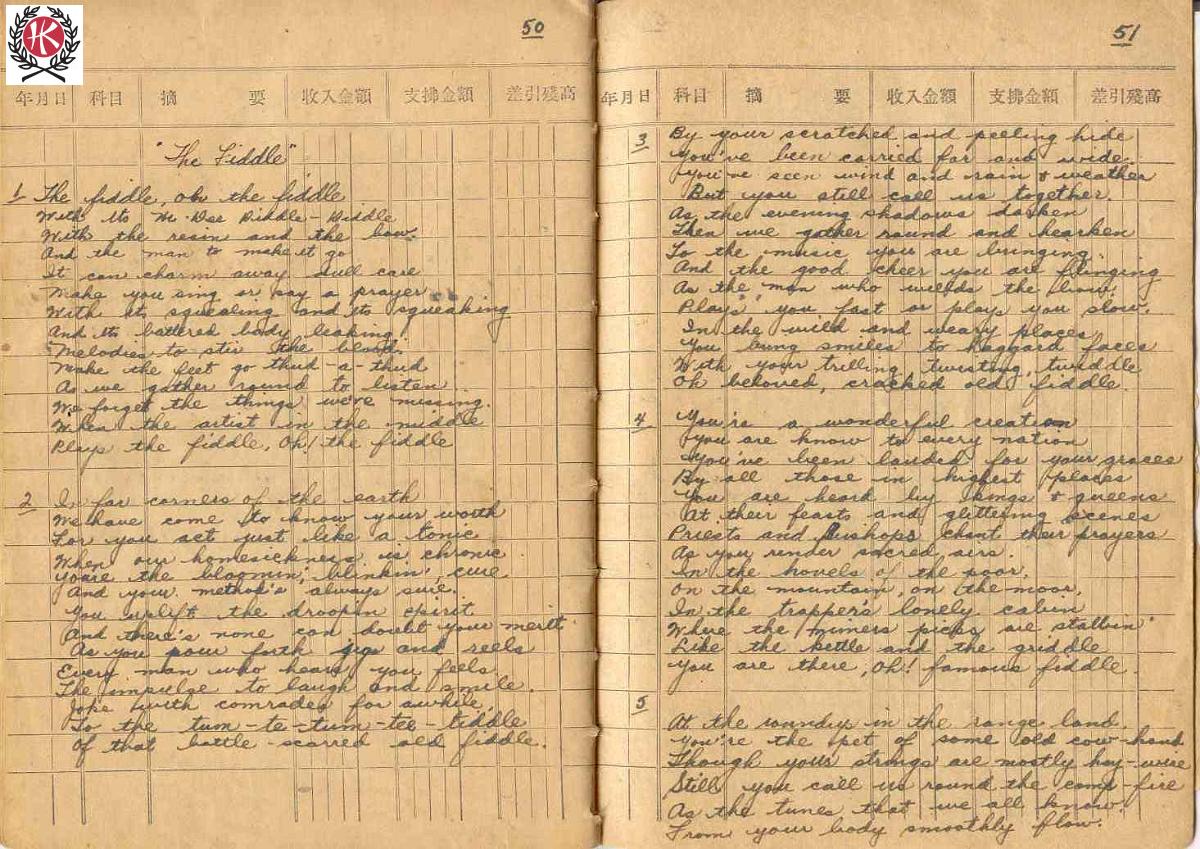 HK
50
年月日 科目 摘 要 收入金額 支拂金額 差引殘高
"The Fiddle"
1 The fiddle, oh the fiddle
With its Diddle-Diddle
With the resin and the bow.
And the man to make it go
It can charm away dull care
Make you sing or say a prayer
With its squealing and its squeaking
And its battered body leaking
Melodies to stir the blood.
Make the feet go thud-a-thud
As we gather round to listen
We forget the things we're missing.
When the artist in the middle
Plays the fiddle, Oh! the fiddle
2 In far corners of the earth
We have come to know your worth
For you act just like a tonic
When our homesickness is chronic
You're the bloomin', blinkin', cure
And your method's always sure.
You uplift the droopin spirit
And there's none can doubt your merit
As you pour forth jigs and reels
Every man who hears you feels
The impulse to laugh and smile.
Joke with comrades for awhile,
To the tum-te-tum-tee-tiddle
Of that battle-scarred old fiddle.
51
年月日 科目 摘 要 收入金額 支拂金額 差引殘高
3 By your scratched and peeling hide
You've been carried far and wide.
You've seen wind and rain & weather
But you still call us together.
As the evening shadows darken
Then we gather round and hearken
To the music you are bringing
And the good cheer you are flinging
As the man who wields the bow,
Plays you fast or plays you slow.
In the wild and weary places
You bring smiles to haggard faces
With your trilling, twisting, twiddle
Oh beloved, cracked old fiddle.
4 You're a wonderful creation
You are know to every nation
You've been lauded for your graces
By all those in highest places
You are heard by kings & queens
At their feasts and glittering scenes
Priests and Bishops chant their prayers
As you render sacred airs.
In the hovels of the poor,
On the mountain, on the moor,
In the trapper's lonely cabin
Where the miners picks are stabbin'
Like the kettle and the griddle
You are there, Oh! famous fiddle.
5 At the roundup in the range land.
You're the pet of some old cow-hand
Though your strings are mostly hay-wire
Still you call us round the camp-fire
As the tunes that we all know
From your body smoothly flow.